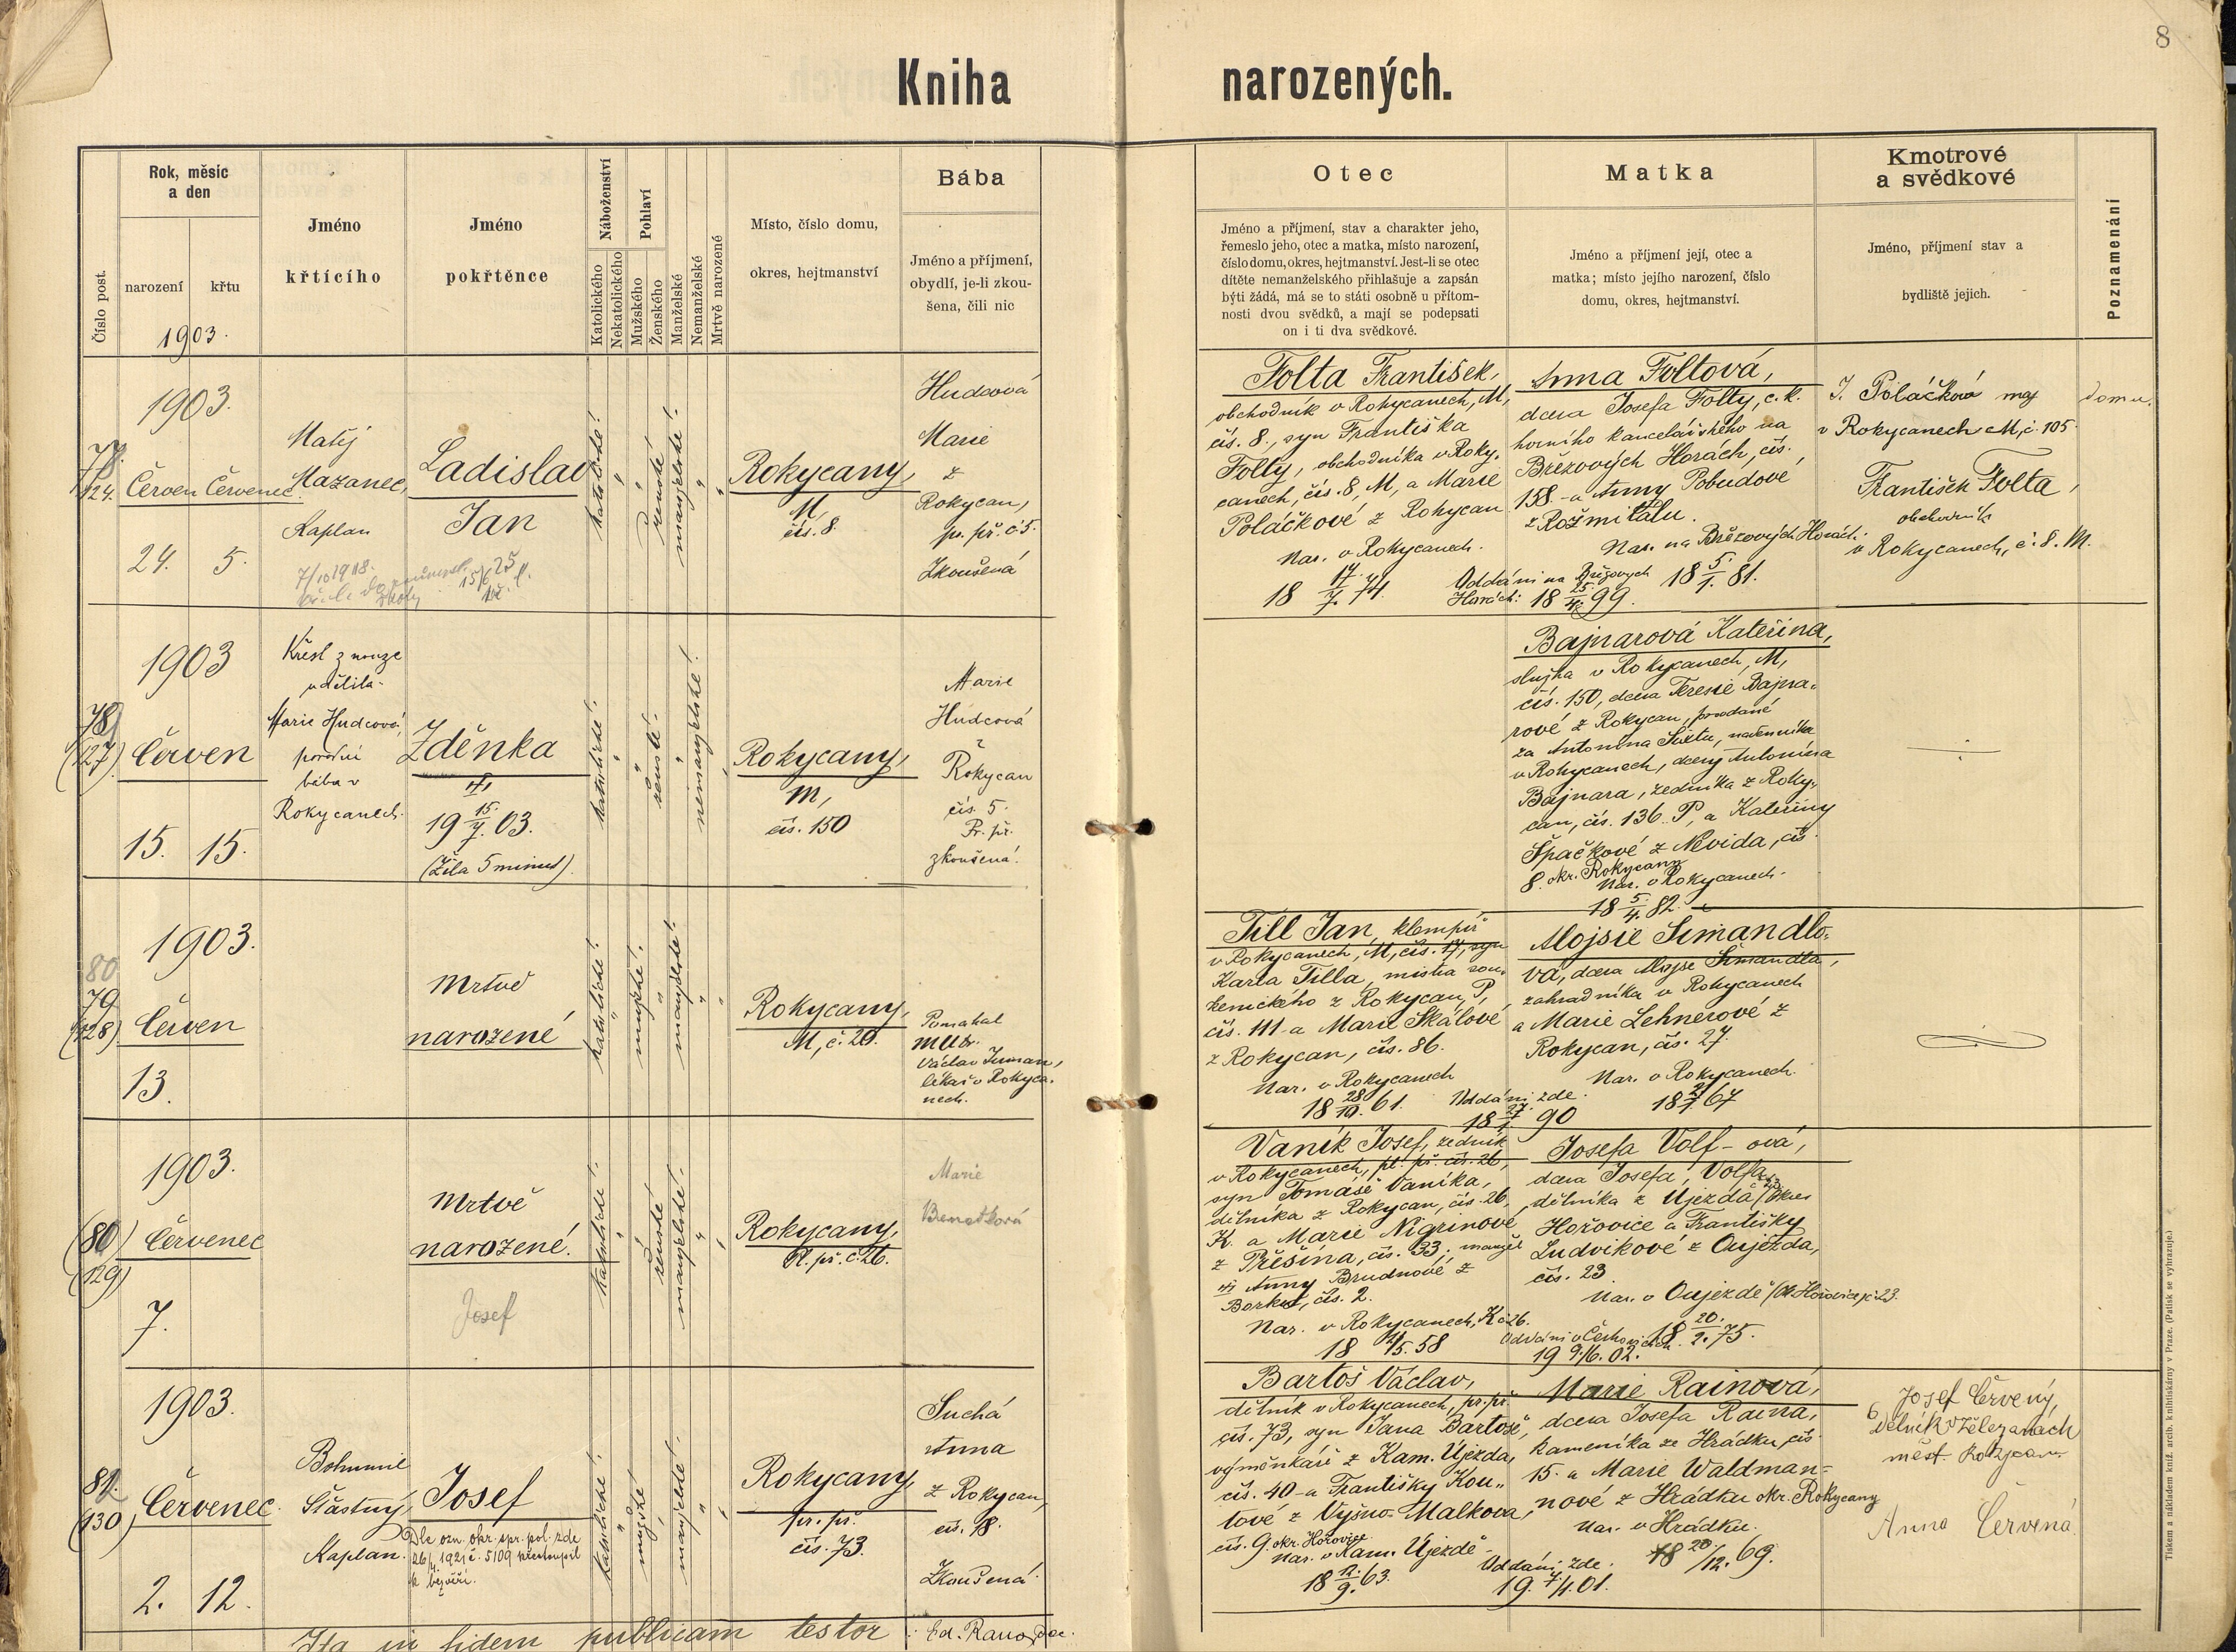 8
Kniha narozených.
Číslo post.
Rok, měsíc
a den
narození
křtu
1903.
Jméno
křtícího
Jméno
pokřtěnce
Náboženství
Katolického
Nekatolického
Pohlaví
Mužského
Ženského
Manželské
Nemanželské
Mrtvě narozené
Místo, číslo domu,
okres, hejtmanství
Bába
Jméno a příjmení,
obydlí, je-li zkou-
šena, čili nic
Otec
Jméno a příjmení, stav a charakter jeho,
řemeslo jeho, otec a matka, místo narození,
číslo domu, okres, hejtmanství. Jest-li se otec
dítěte nemanželského přihlašuje a zapsán
býti žádá, má se to státi osobně u přítom-
nosti dvou svědků, a mají se podepsati
on i ti dva svědkové.
Matka
Jméno a příjmení její, otec a
matka; místo jejího narození, číslo
domu, okres, hejtmanství.
Kmotrové
a svědkové
Jméno, příjmení stav a
bydliště jejich.
Poznamenání
1903.
124.
Červen Červenec
24. 5.
Matěj
Mazanec,
Kaplan
Ladislav
Jan
7/10 1918.
katolické!
ženské!
manželské!
Rokycany,
M,
čís. 8.
Hudcová
Marie
z
Rokycan,
pr. př. č 5.
Zkoušená
Folta František,
obchodník v Rokycanech, M,
čís. 8., syn Františka
Folty, obchodníka v Roky-
canech, čís. 8, M, a Marie
Poláčkové z Rokycan
Nar. v Rokycanech.
18 17/7. 74.
Anna Foltová,
dcera Josefa Folty, c. k.
horního kancelářského na
Březových Horách, čís.
158. a Anny Pobudové
z Rožmitálu.
Nar. na Březových Horách.
18 5/1. 81.
Oddáni na Březových
Horách: 18 25/4. 99.
J. Poláčková maj domu.
v Rokycanech M, č. 105.
František Folta,
obchodník
v Rokycanech, č. 8. M.
1903
78
(127)
Červen
15. 15.
Křest z nouze
udělila
Marie Hudcová,
porodní
bába v
Rokycanech.
Zděnka
19 15/7. 03.
(Žila 5 minut).
katolické!
ženské!
nemanželské!
Rokycany,
M,
čís. 150
Marie
Hudcová
z
Rokycan
čís. 5.
Pr. př.
zkoušená.
Bajnarová Kateřina,
služka v Rokycanech, M,
čís. 150, dcera Teresie Bajna-
rové z Rokycan, provdané
za Antonína
v Rokycanech, dcery Antonína
Bajnara, zedníka z Roky-
can, čís. 136. P, a Kateřiny
Špačkové z Nevida, čís
8. okr. Rokycany
Nar. v Rokycanech.
18 5/4. 82.
1903.
80
79
(128)
Červen
13.
Mrtvě
narozené
katolické!
mužské!
manželské!
Rokycany,
M, č. 20.
Pomáhal
MUDr.
Václav
lékař v Rokyca-
nech.
Till Jan, klempíř
v Rokycanech, M, čís. 17, syn
Karla Tilla, mistra
z Rokycan, P,
čís. 111 a Marie Skálové
z Rokycan, čís. 86.
Nar. v Rokycanech
18 28/10. 61.
Alojsie Šimandlo-
vá, dcera Alojse Šimandla,
zahradníka v Rokycanech
a Marie Lehnerové z
Rokycan, čís. 27.
Nar. v Rokycanech.
Oddáni zde.
90
1903.
(80)
(129)
Červenec
7.
Mrtvě
narozené.
Josef
katolické!
ženské!
manželské!
Rokycany,
Pl. př. č. 26.
Marie
Vaník Josef, zedník
v Rokycanech, pl. př. čís. 26,
syn Tomáše Vaníka,
dělníka z Rokycan, čís. 26,
K. a Marie Nigrinové
z Přešína, čís. 33; manžel
Anny Brudnové z
Borku, čís. 2.
Nar. v Rokycanech, K č 26.
58
Josefa Volf-ová,
dcera Josefa Volfa,
dělníka z Újezda, okres
Hořovice a Františky
Ludvikové z Oujezda,
čís. 23
Nar. v Oujezdě
18 20/2. 75.
19 9./6. 02.
1903.
81.
(130)
Červenec
2. 12.
Bohumil
Šťastný,
Kaplan.
Josef
Dle ozn. okr. spr. pol. zde
26/4. 1921 č. 5109 přestoupil
k bezvěří.
katolické!
mužské!
manželské!
Rokycany,
pr. př.
čís. 73.
Suchá
Anna
z Rokycan,
čís. 18.
Zkoušená
Bartoš Václav,
dělník v Rokycanech, pr. př.
čís. 73, syn Jana Bartoše,
výměnkáře z Kam. Újezda,
čís. 40 a Františky Kou-
tové z Vyšno-Malkova,
čís. 9. okr. Hořovice
Nar. v Kam. Újezdě
18 12./9. 63.
Marie Rainová,
dcera Josefa Raina,
kameníka ze Hrádku, čís
15. a Marie Waldman-
nové z Hrádku okr. Rokycany
Nar. v Hrádku.
18 28/12. 69.
Oddáni zde.
19. 7/1. 01.
Josef Červený,
dělník v železárnách
měst. Rokycan.
Anna Červená.
Ita in fidem publicam testor
Tiskem a nákladem kníž. arcib. knihtiskárny v Praze. (Patisk se vyhrazuje.)